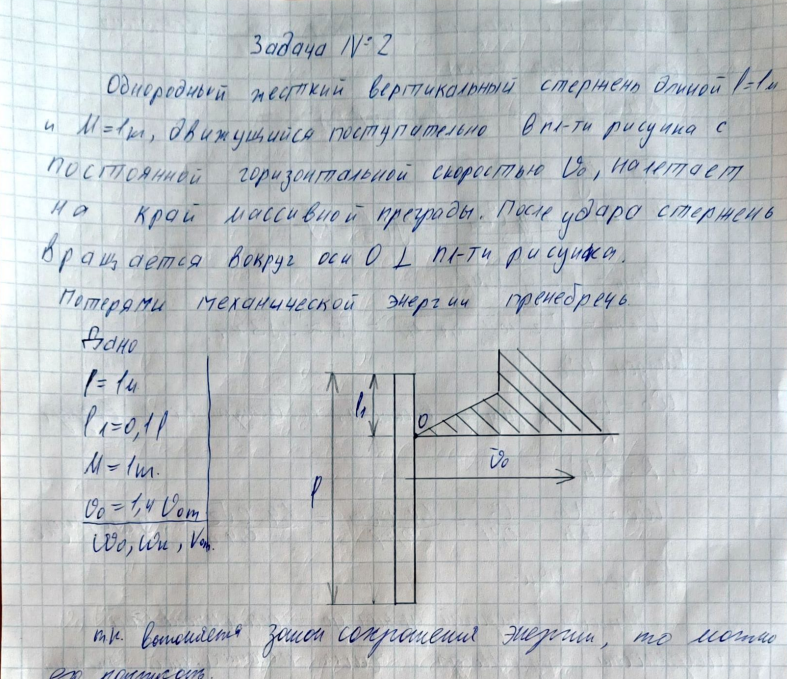 Задача №2
Однородный жесткий вертикальный стержень длиной l=1м
и M=1кг, движущийся поступательно в пл-ти рисунка с
постоянной горизонтальной скоростью v₀, налетает
на край массивной преграды. После удара стержень
вращается вокруг оси O ⊥ пл-ти рисунка.
Потерями механической энергии пренебречь.
Дано
l=1м
l₁=0,1l
M=1кг.
v₀=1,4 v₀m
ω₀, ωк, v₀m.
l₁
O
v̄₀
l
т.к. выполняется закон сохранения энергии, то можно